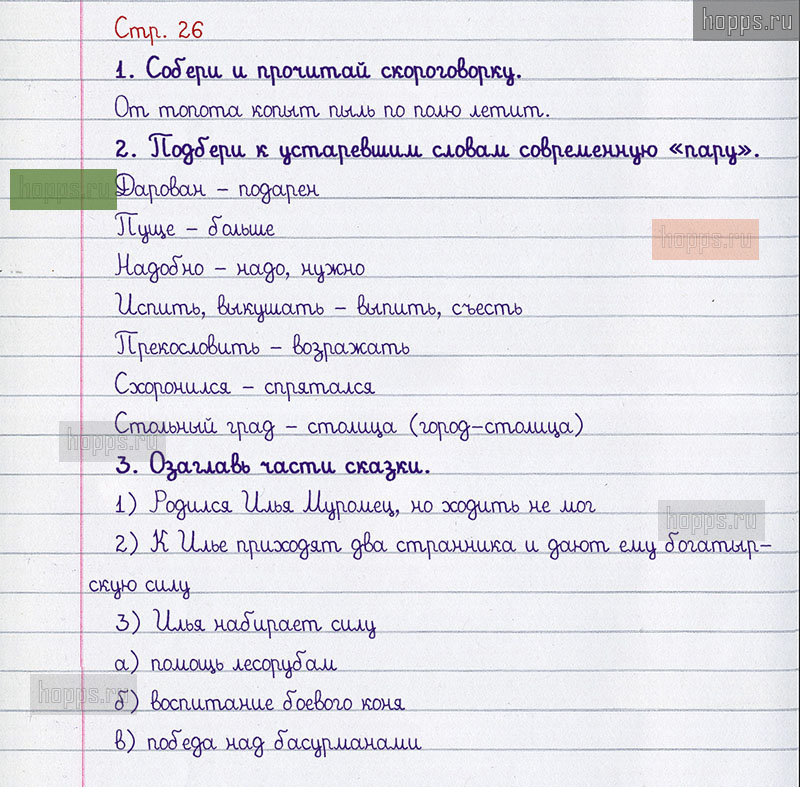 hopps.ru
Стр. 26
1. Собери и прочитай скороговорку.
От топота копыт пыль по полю летит.
2. Подбери к устаревшим словам современную «пару».
hopps.ru
Дарован – подарен
Пуще – больше
hopps.ru
Надобно – надо, нужно
Испить, выкушать – выпить, съесть
Прекословить – возражать
Схоронился – спрятался
Стольный град – столица (город-столица)
hopps.ru
3. Озаглавь части сказки.
1) Родился Илья Муромец, но ходить не мог
hopps.ru
2) К Илье приходят два странника и дают ему богатыр-
скую силу
3) Илья набирает силу
а) помощь лесорубам
hopps.ru
б) воспитание боевого коня
в) победа над басурманами